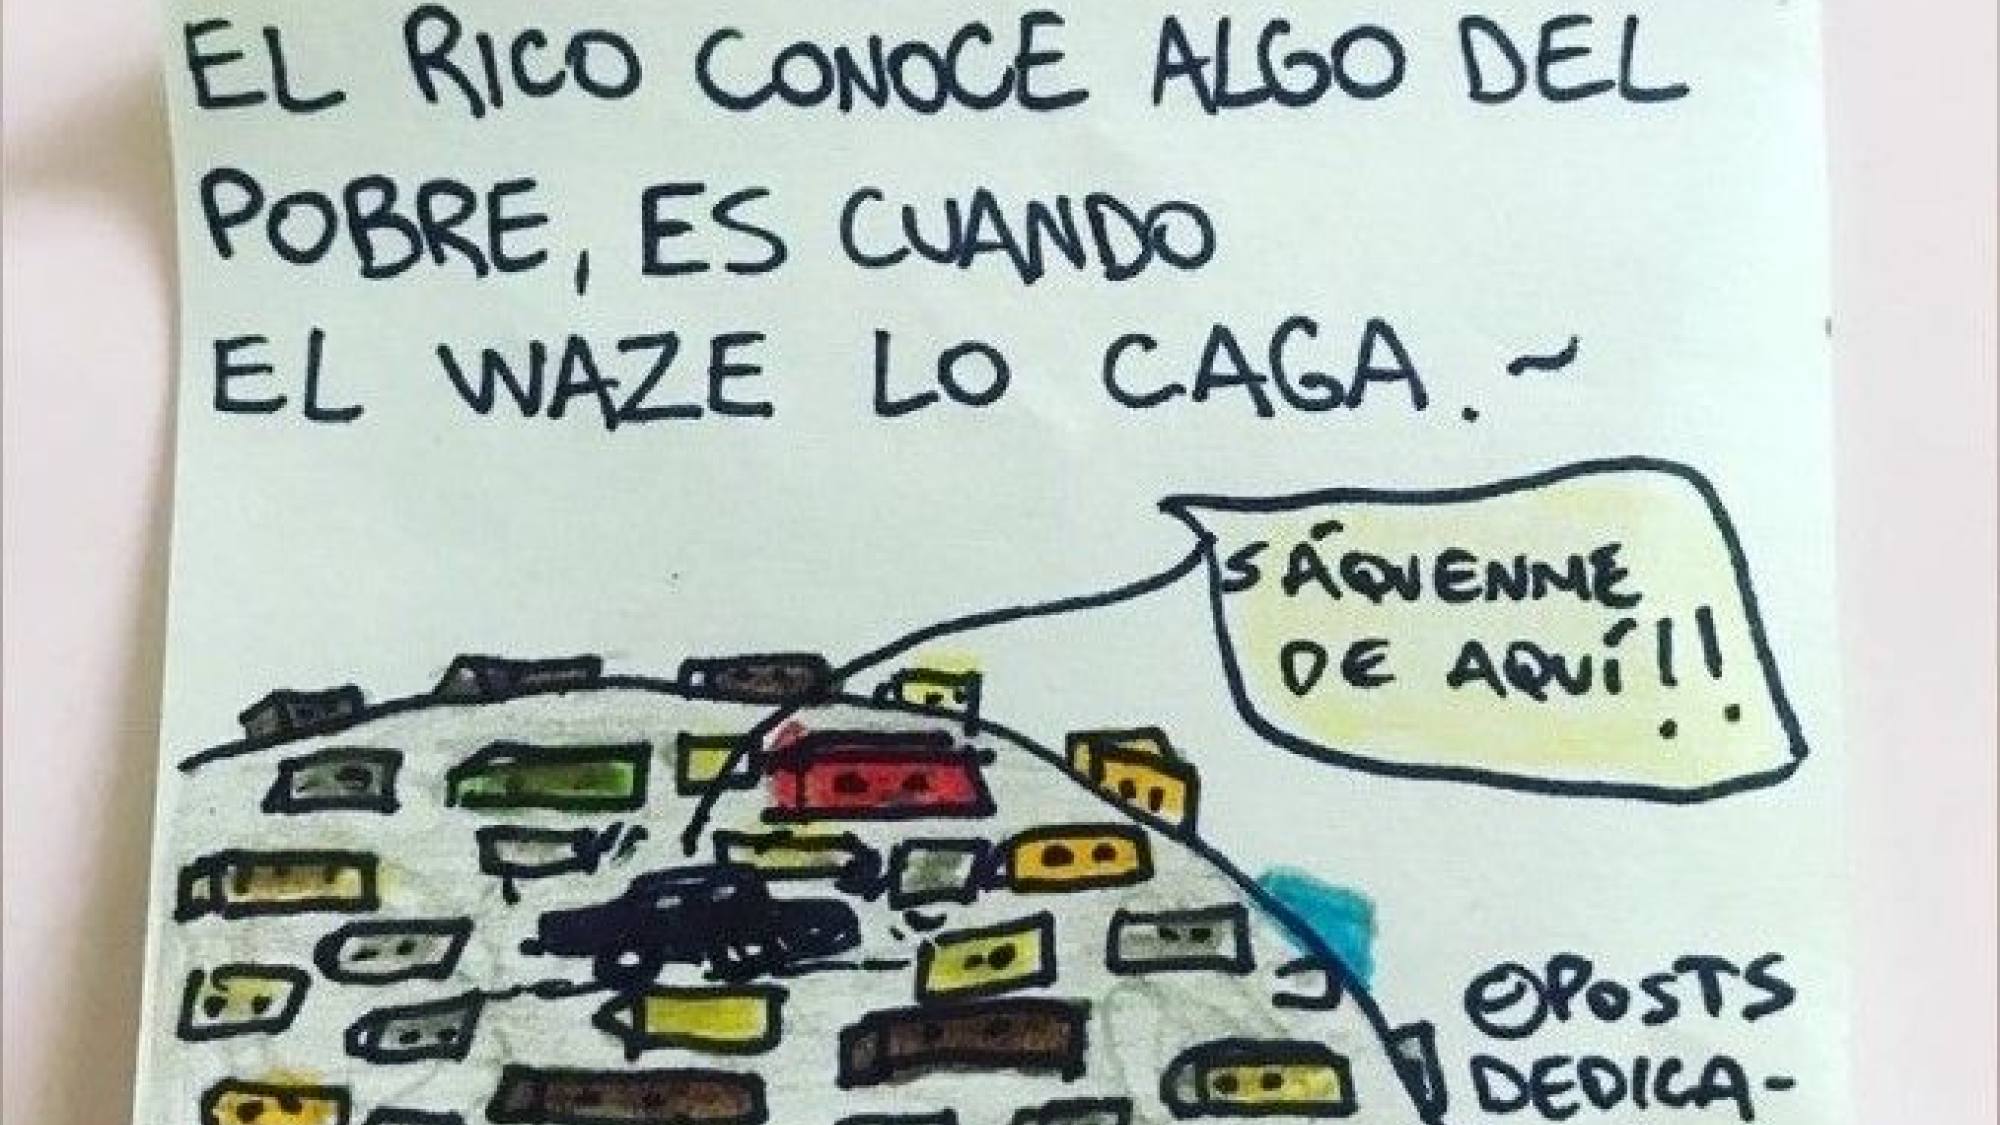 EL RICO CONOCE ALGO DEL
POBRE, ES CUANDO
EL WAZE LO CAGA.~
SÁQUENME
DE AQUÍ!!
@POSTS
DEDICA-